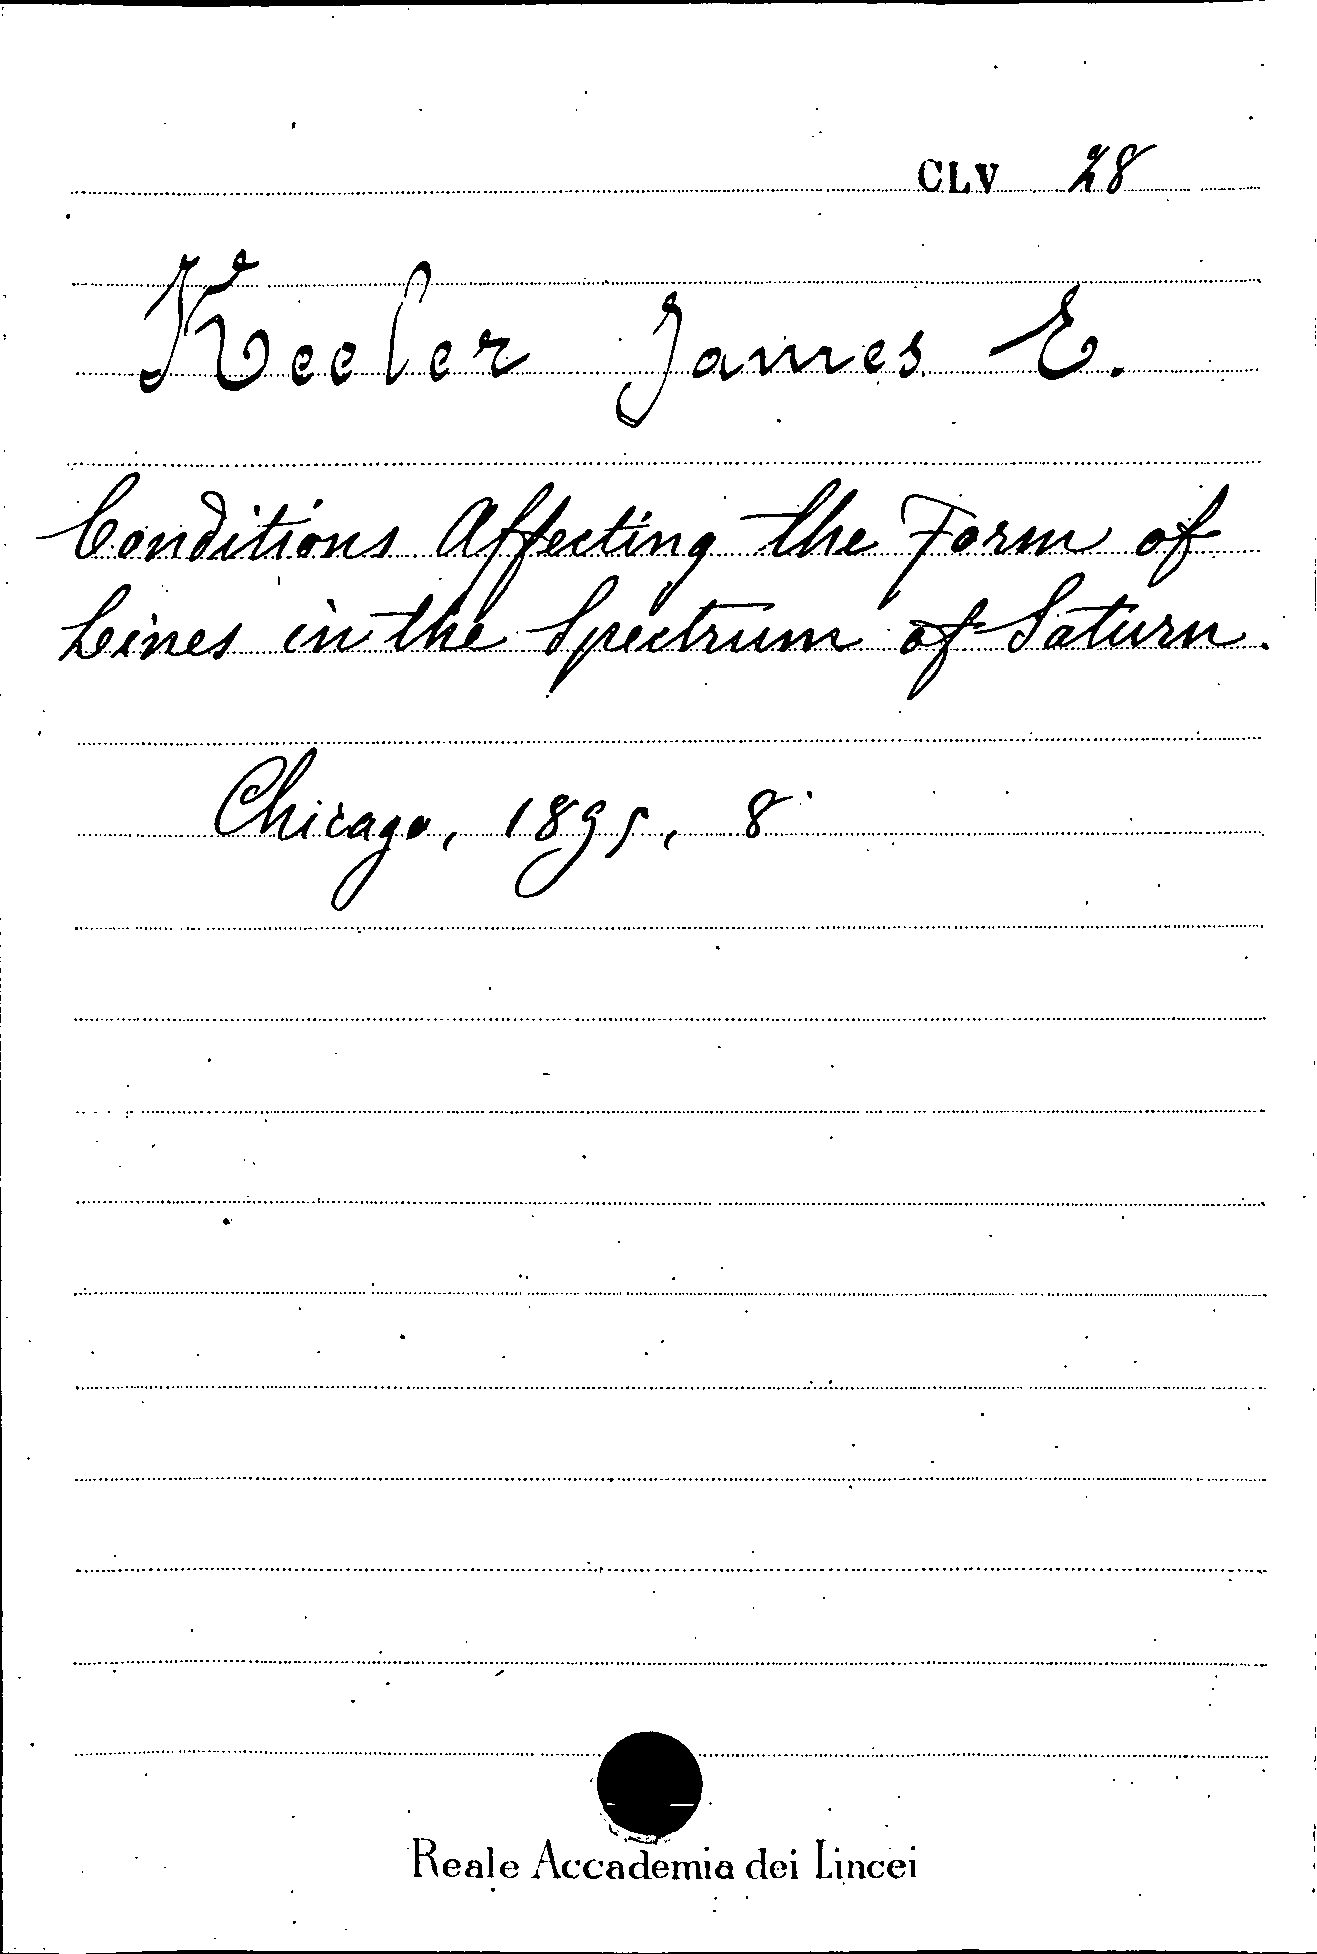 CLV 28
Keeler James E.
Conditions Affecting the Form of
Lines in the Spectrum of Saturn.
Chicago, 1895, 8°
Reale Accademia dei Lincei